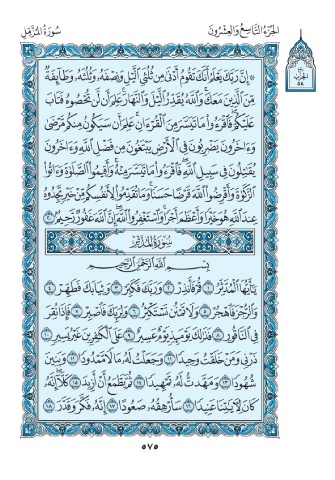 سُورَةُ المُزَّمِّل
الجُزْءُ التَّاسِعُ وَالعِشْرُونَ
الحزب
٥٨
۞ إِنَّ رَبَّكَ يَعْلَمُ أَنَّكَ تَقُومُ أَدْنَىٰ مِن ثُلُثَيِ ٱلَّيْلِ وَنِصْفَهُۥ وَثُلُثَهُۥ وَطَآئِفَةٌ
مِّنَ ٱلَّذِينَ مَعَكَۚ وَٱللَّهُ يُقَدِّرُ ٱلَّيْلَ وَٱلنَّهَارَۚ عَلِمَ أَن لَّن تُحْصُوهُ فَتَابَ
عَلَيْكُمْۖ فَٱقْرَءُوا۟ مَا تَيَسَّرَ مِنَ ٱلْقُرْءَانِۚ عَلِمَ أَن سَيَكُونُ مِنكُم مَّرْضَىٰ
وَءَاخَرُونَ يَضْرِبُونَ فِى ٱلْأَرْضِ يَبْتَغُونَ مِن فَضْلِ ٱللَّهِ وَءَاخَرُونَ
يُقَٰتِلُونَ فِى سَبِيلِ ٱللَّهِۖ فَٱقْرَءُوا۟ مَا تَيَسَّرَ مِنْهُۚ وَأَقِيمُوا۟ ٱلصَّلَوٰةَ وَءَاتُوا۟
ٱلزَّكَوٰةَ وَأَقْرِضُوا۟ ٱللَّهَ قَرْضًا حَسَنًاۚ وَمَا تُقَدِّمُوا۟ لِأَنفُسِكُم مِّنْ خَيْرٍ تَجِدُوهُ
عِندَ ٱللَّهِ هُوَ خَيْرًا وَأَعْظَمَ أَجْرًاۚ وَٱسْتَغْفِرُوا۟ ٱللَّهَۖ إِنَّ ٱللَّهَ غَفُورٌ رَّحِيمٌۢ ٢٠
سُورَةُ المُدَّثِّر
بِسْمِ ٱللَّهِ ٱلرَّحْمَٰنِ ٱلرَّحِيمِ
يَٰٓأَيُّهَا ٱلْمُدَّثِّرُ ١ قُمْ فَأَنذِرْ ٢ وَرَبَّكَ فَكَبِّرْ ٣ وَثِيَابَكَ فَطَهِّرْ ٤
وَٱلرُّجْزَ فَٱهْجُرْ ٥ وَلَا تَمْنُن تَسْتَكْثِرُ ٦ وَلِرَبِّكَ فَٱصْبِرْ ٧ فَإِذَا نُقِرَ
فِى ٱلنَّاقُورِ ٨ فَذَٰلِكَ يَوْمَئِذٍ يَوْمٌ عَسِيرٌ ٩ عَلَى ٱلْكَٰفِرِينَ غَيْرُ يَسِيرٍ ١٠
ذَرْنِى وَمَنْ خَلَقْتُ وَحِيدًا ١١ وَجَعَلْتُ لَهُۥ مَالًا مَّمْدُودًا ١٢ وَبَنِينَ
شُهُودًا ١٣ وَمَهَّدتُّ لَهُۥ تَمْهِيدًا ١٤ ثُمَّ يَطْمَعُ أَنْ أَزِيدَ ١٥ كَلَّآۖ إِنَّهُۥ
كَانَ لِءَايَٰتِنَا عَنِيدًا ١٦ سَأُرْهِقُهُۥ صَعُودًا ١٧ إِنَّهُۥ فَكَّرَ وَقَدَّرَ ١٨
٥٧٥